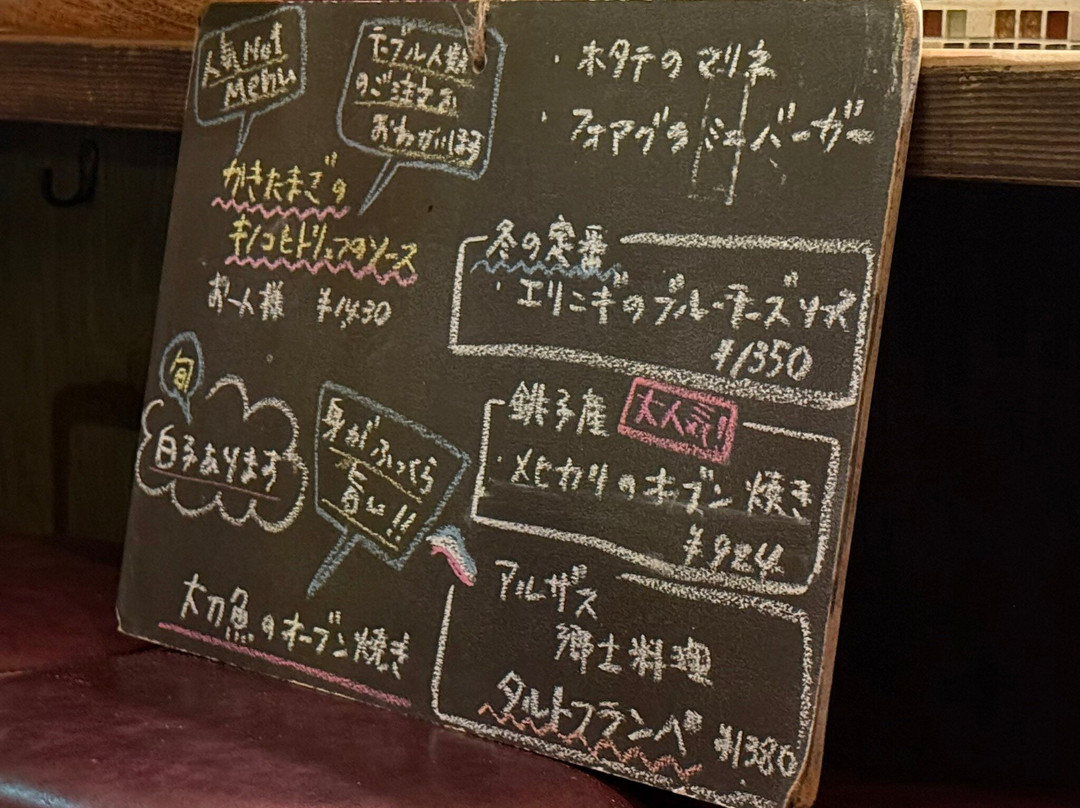 人気No1
Menu
テーブル人数
のご注文を
おねがいします
かきたまごの
キノコとトリュフのソース
お一人様 ¥1430
旬
白子あります
身がふっくら
旨い!!
太刀魚のオーブン焼き
・ホタテのマリネ
・フォアグラミニバーガー
冬の定番
・エリンギのブルーチーズソース
¥1350
銚子産 大人気!
・メヒカリのオーブン焼き
¥924
アルザス
郷土料理
タルトフランベ ¥1380